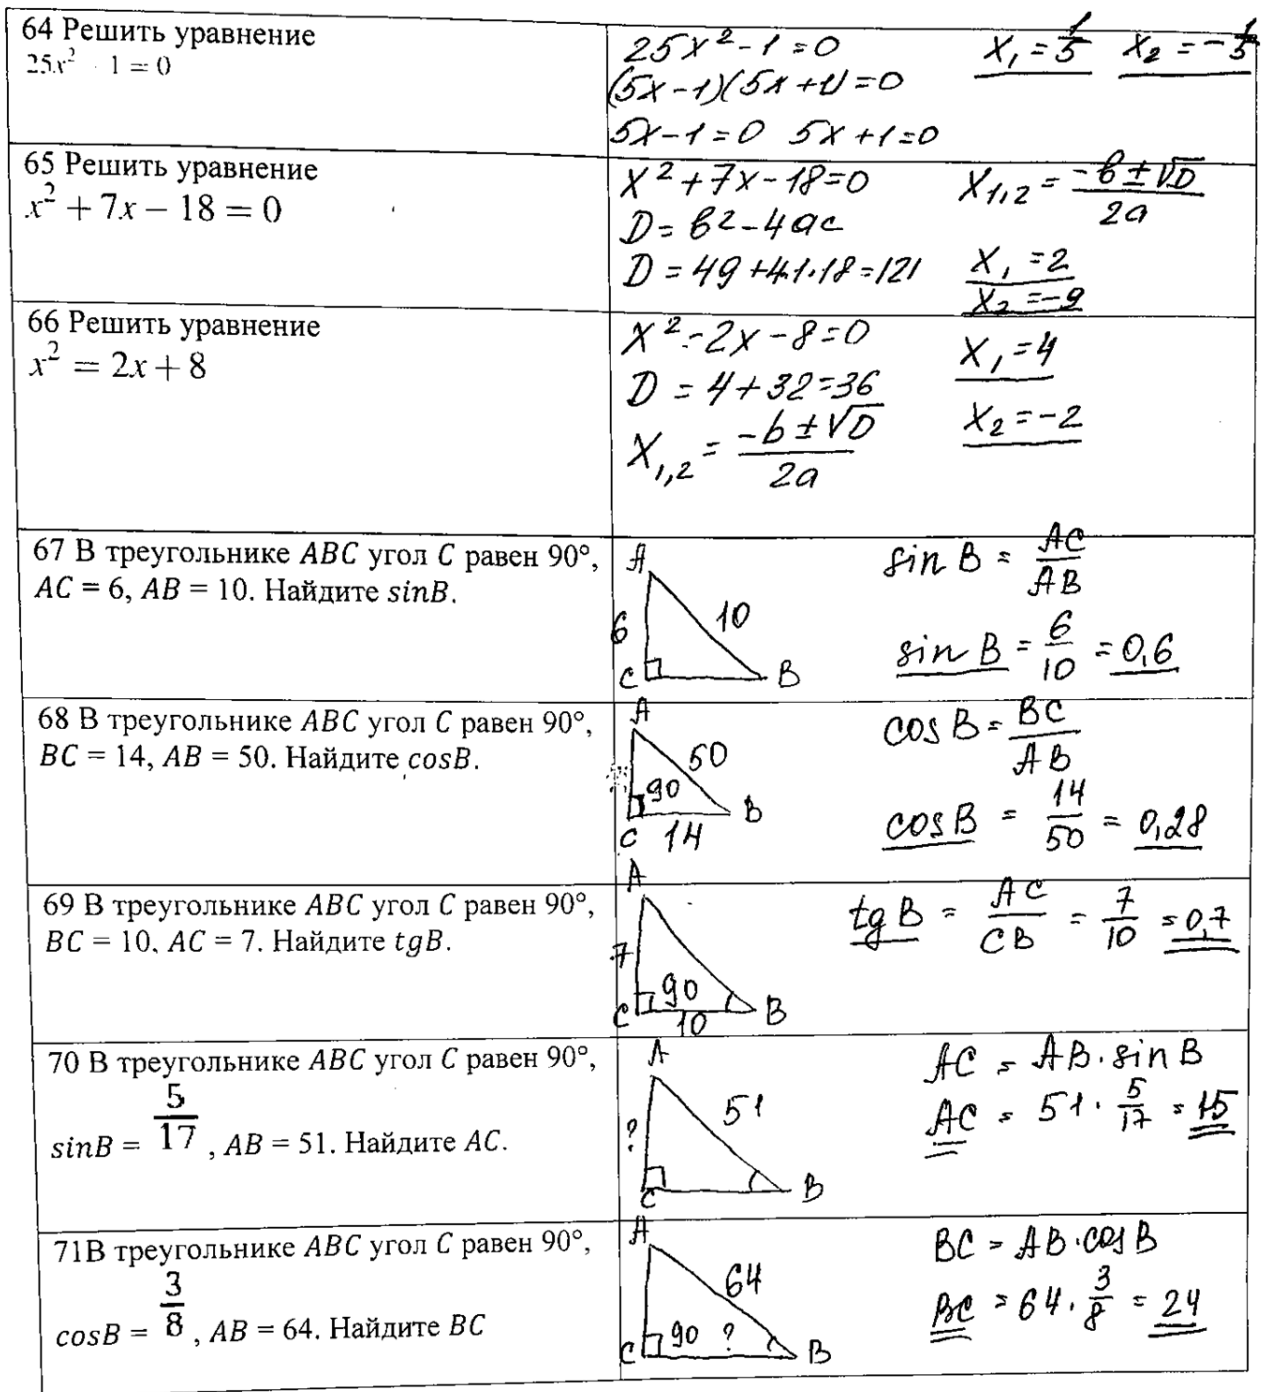 64 Решить уравнение
25x² - 1 = 0
25x² - 1 = 0
(5x-1)(5x+1)=0
5x-1=0 5x+1=0
x₁ = 1/5 x₂ = -1/5
65 Решить уравнение
x² + 7x − 18 = 0
x² + 7x - 18 = 0
D = b² - 4ac
D = 49 + 4·1·18 = 121
x₁,₂ = (-b ± √D)/2a
x₁ = 2
x₂ = -9
66 Решить уравнение
x² = 2x + 8
x² - 2x - 8 = 0
D = 4 + 32 = 36
x₁,₂ = (-b ± √D)/2a
x₁ = 4
x₂ = -2
67 В треугольнике ABC угол C равен 90°,
AC = 6, AB = 10. Найдите sinB.
A
6
10
C
B
sin B = AC/AB
sin B = 6/10 = 0,6
68 В треугольнике ABC угол C равен 90°,
BC = 14, AB = 50. Найдите cosB.
A
50
90
C
14
B
cos B = BC/AB
cos B = 14/50 = 0,28
69 В треугольнике ABC угол C равен 90°,
BC = 10, AC = 7. Найдите tgB.
A
7
90
C
10
B
tg B = AC/CB = 7/10 = 0,7
70 В треугольнике ABC угол C равен 90°,
sinB = 5/17 , AB = 51. Найдите AC.
A
51
?
C
B
AC = AB · sin B
AC = 51 · 5/17 = 15
71В треугольнике ABC угол C равен 90°,
cosB = 3/8 , AB = 64. Найдите BC
A
64
C
90 ?
B
BC = AB · cos B
BC = 64 · 3/8 = 24